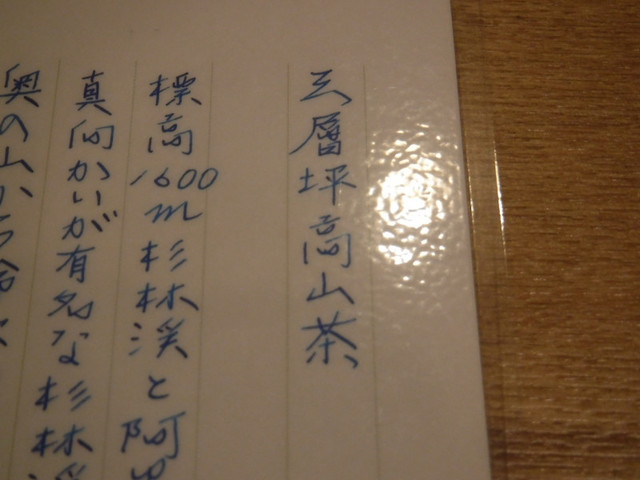 云層坪高山茶
標高1600m杉林渓と阿
真向かいが有名な杉林渓
奥の山から